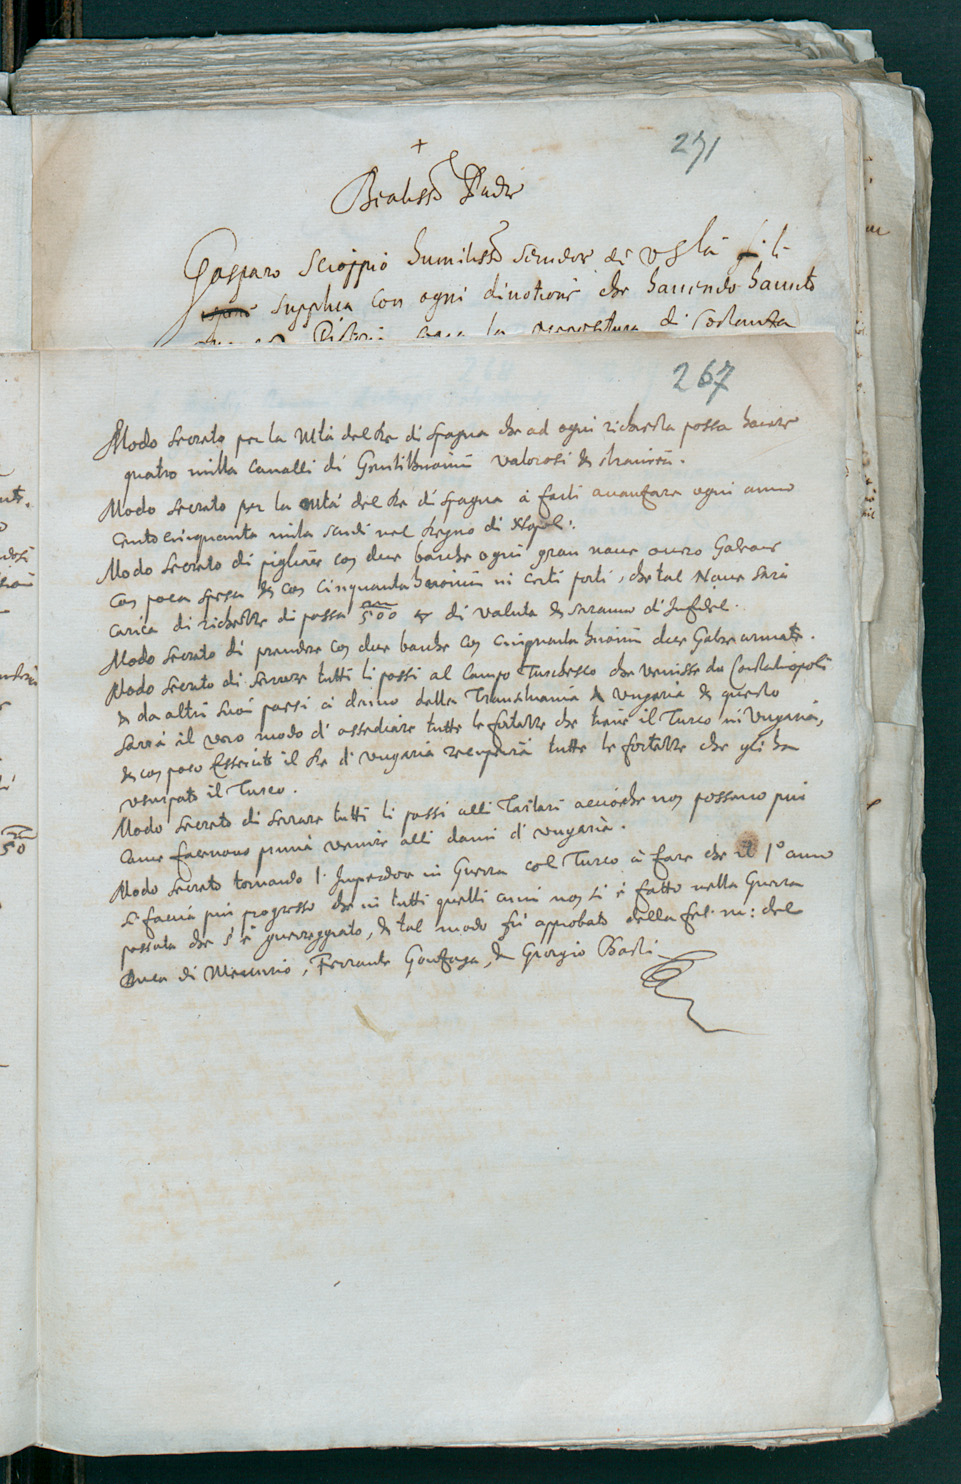 271
+
Beatissº Padre
Gasparo Scioppio humilissº servidor di V Stà
supplica con ogni divotione che havendo havuto
la di Costanza
267
Modo secreto per la Mtà del Re di Spagna che ad ogni richiesta possa havere
quatro milla cavalli di Gentilhuomini valorosi &
Modo secreto per la Mtà del Re di Spagna à farli avanzare ogni anno
cento cinquanta mila scudi nel Regno di
Modo secreto di pigliare con due barche ogni gran nave overo Galeone
con poca spesa & con cinquanta huomini in certi porti, che tal Nave sarà
carica di richezze di passa 500 di valuta & saranno d'Infedel.
Modo secreto di prendere con due barche con cinquanta huomini due Galee armate.
Modo secreto di serrare tutti li passi al Campo Turchesco che venisse da Constatinopoli
& da altri suoi paesi à danno della Transilvania & Ungaria & questo
sarrà il vero modo d'assediare tutte le fortezze che tiene il Turco in Ungaria,
& con poco Essercito il Re d'Ungaria recuperà tutte le fortezze che gli ha
usurpato il Turco.
Modo secreto di serrare tutti li passi alli Tartari acciòche non possano più
come facevano prima venire alli danni d'Ungaria.
Modo secreto tornando l'Imperdore in Guerra col Turco à fare che il 1º anno
si faccia più progresso che in tutti quelli anni non si è fatto nella Guerra
passata che s'è guerreggiato, & tal modo fù approbato della fel. m: del
Duca di Mercurio, Ferrante Gonzaga, & Giorgio Basti
50